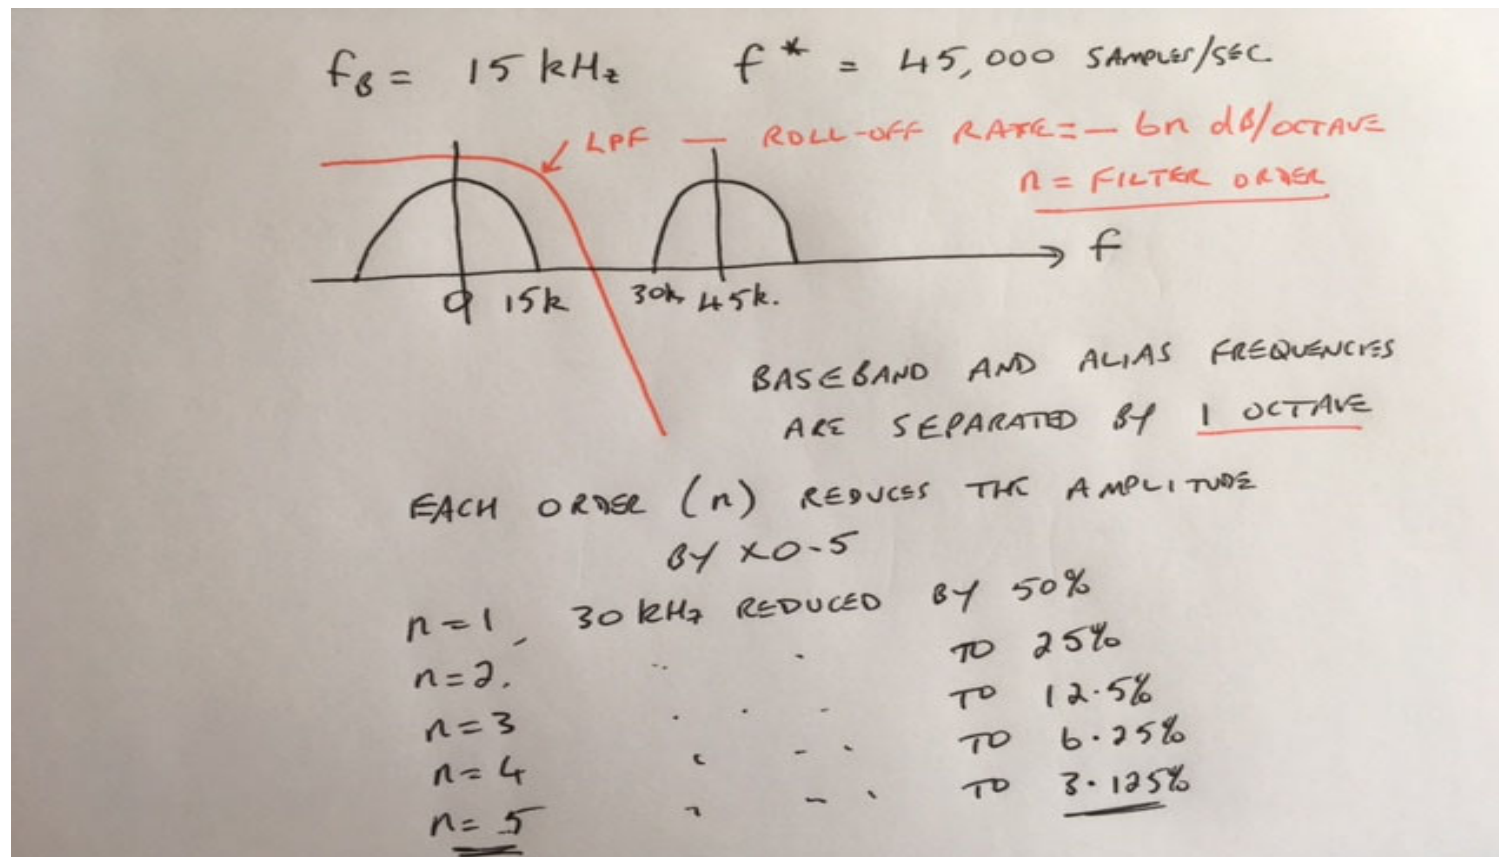 fB = 15 kHz f* = 45,000 SAMPLES/SEC
LPF — ROLL-OFF RATE = - 6n dB/OCTAVE
n = FILTER ORDER
f
0 15k 30k 45k.
BASEBAND AND ALIAS FREQUENCIES
ARE SEPARATED BY 1 OCTAVE
EACH ORDER (n) REDUCES THE AMPLITUDE
BY x0.5
n=1, 30 kHz REDUCED BY 50%
n=2. " " TO 25%
n=3 " " " TO 12.5%
n=4 " " " TO 6.25%
n=5 " " " TO 3.125%